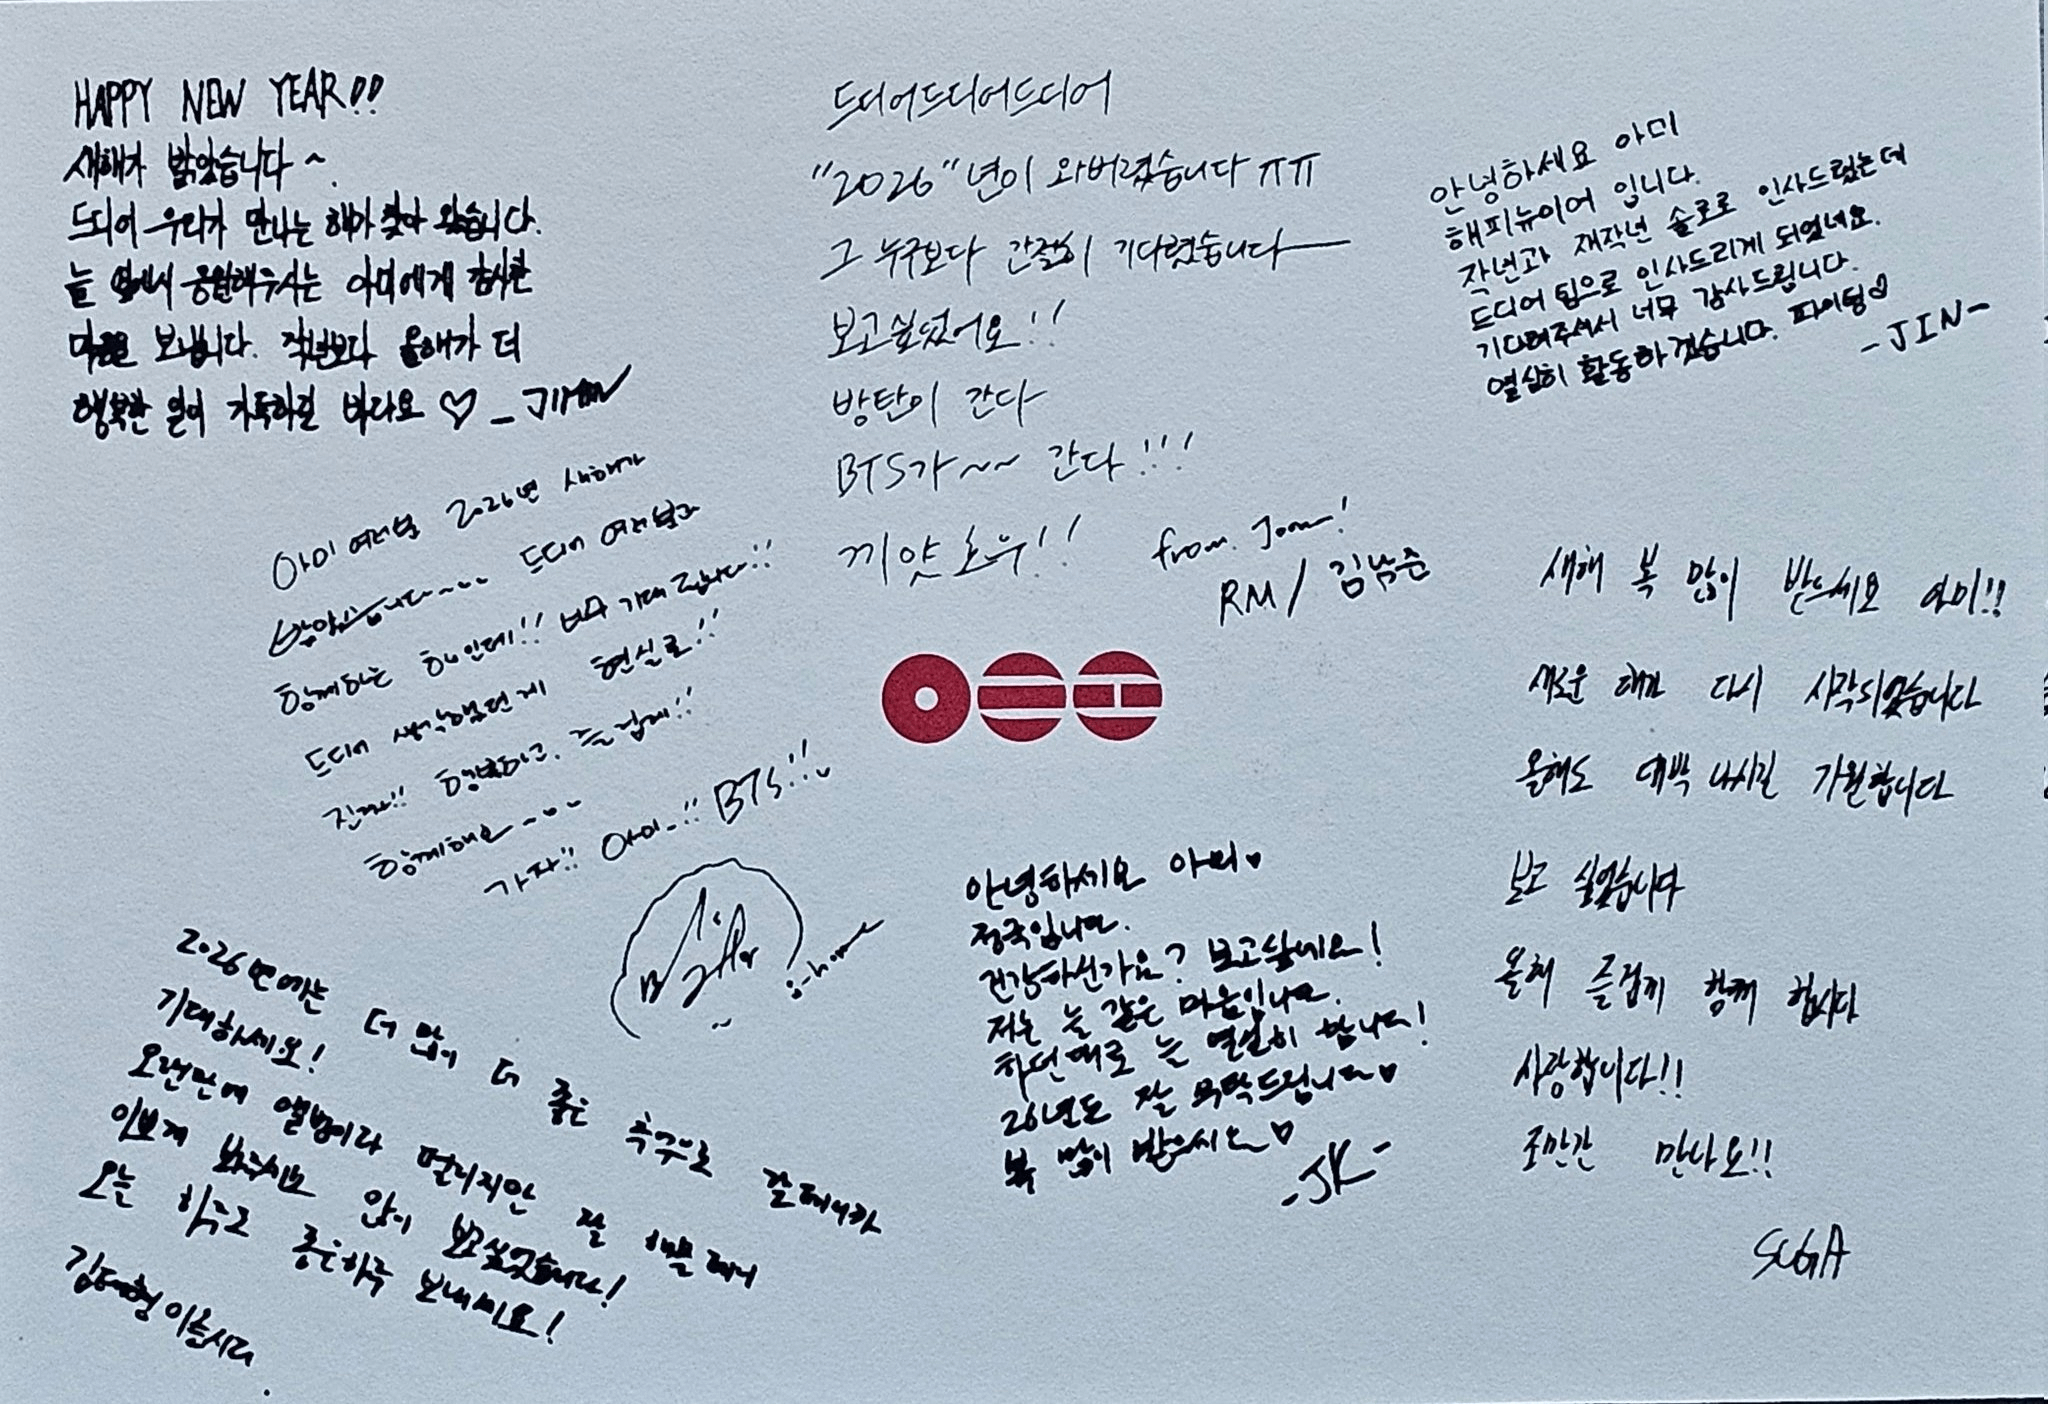 HAPPY NEW YEAR!!
새해가 밝았습니다~
드디어 우리가 만나는 해가 찾아 왔습니다.
늘 옆에서 응원해주시는 아미에게 감사한
마음을 보냅니다. 작년보다 올해가 더
행복한 일이 가득하길 바라요 ♡ - JIMIN
드디어드디어드디어
"2026"년이 와버렸습니다 ㅠㅠ
그 누구보다 간절히 기다렸습니다
보고싶었어요!!
방탄이 간다
BTS가~~ 간다!!!
끼얏호우!!
from. Joon!
RM / 김남준
안녕하세요 아미
해피뉴이어 입니다.
작년과 재작년 솔로로 인사드렸는데
드디어 팀으로 인사드리게 되었네요.
기다려주셔서 너무 감사드립니다.
열심히 활동하겠습니다. 파이팅♡
- JIN -
아미 여러분 2026년 새해가
밝았습니다~~~ 드디어 여러분과
함께하는 해인데!! 너무 기대됩니다!!
드디어 생각했던게 현실로!!
진짜!! 행복하고. 즐겁게!!
함께해요~~~
가자!! 아미..!! BTS!!
j-hope
새해 복 많이 받으세요 아미!!
새로운 해가 다시 시작되었습니다
올해도 대박 나시길 기원합니다
보고 싶었습니다
올해 즐겁게 함께 합시다
사랑합니다!!
조만간 만나요!!
SUGA
안녕하세요 아미♥
정국입니다.
건강하신가요? 보고싶네요!
저는 늘 같은 마음입니다.
하던대로 늘 열심히 합니다!
26년도 잘 부탁드립니다♥
복 많이 받으시오♡
- JK -
2026년에는 더 많이 더 좋은 추억으로 갈테니까
기대하세요!
오랜만에 앨범이라 떨리지만 잘 해볼테니
이쁘게 봐주시요 많이 보고싶었습니다!
오늘 하루도 좋은하루 보내세요!
김태형 이올시다.